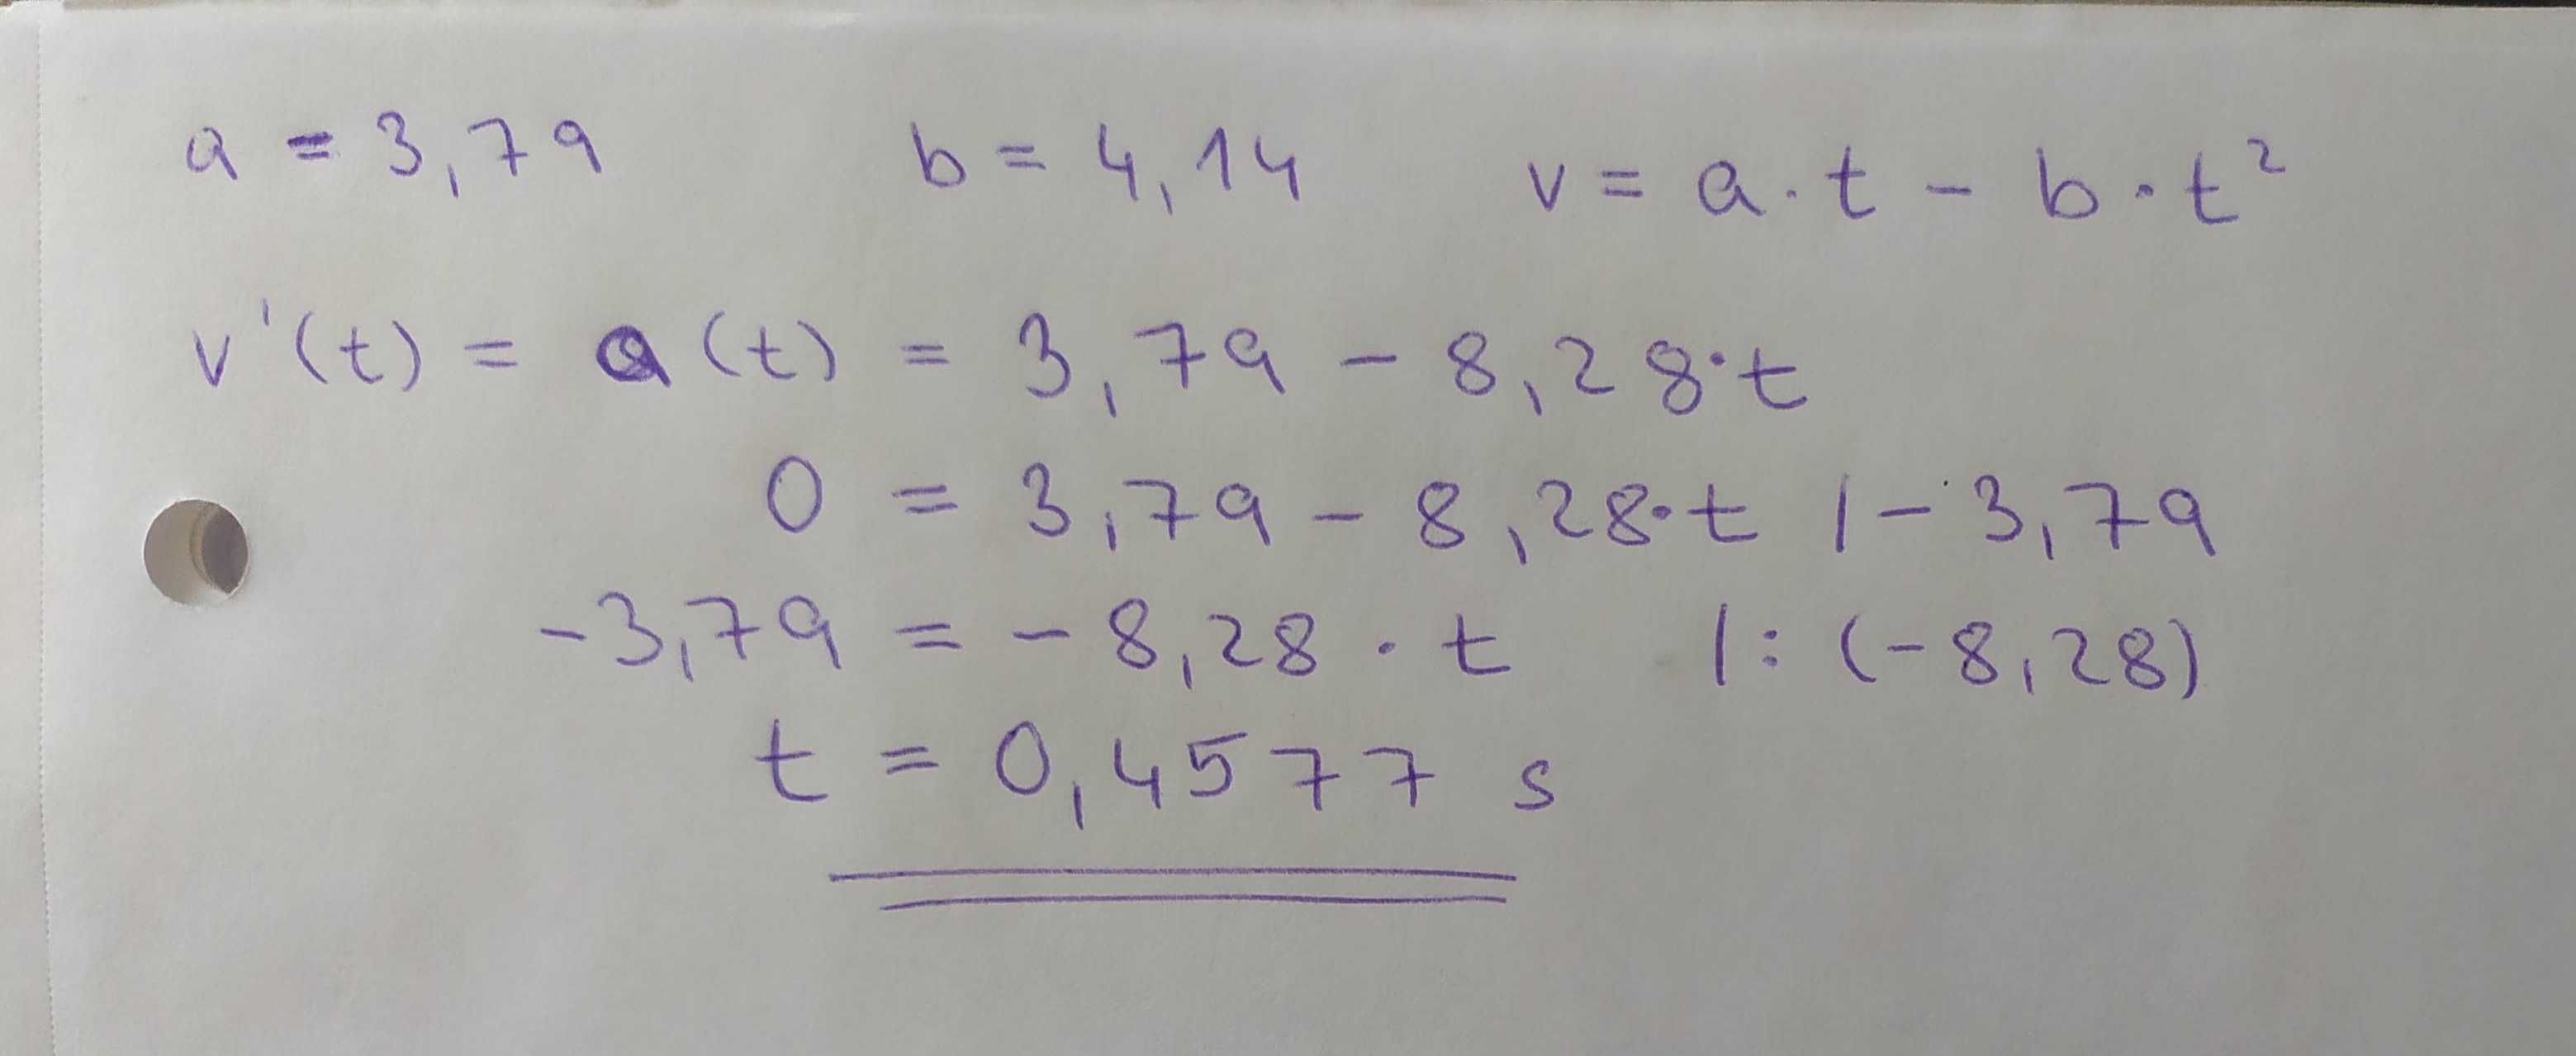 a = 3,79 b = 4,14 v = a · t - b · t²
v'(t) = a(t) = 3,79 - 8,28·t
0 = 3,79 - 8,28·t | - 3,79
-3,79 = -8,28 · t |: (-8,28)
t = 0,4577 s